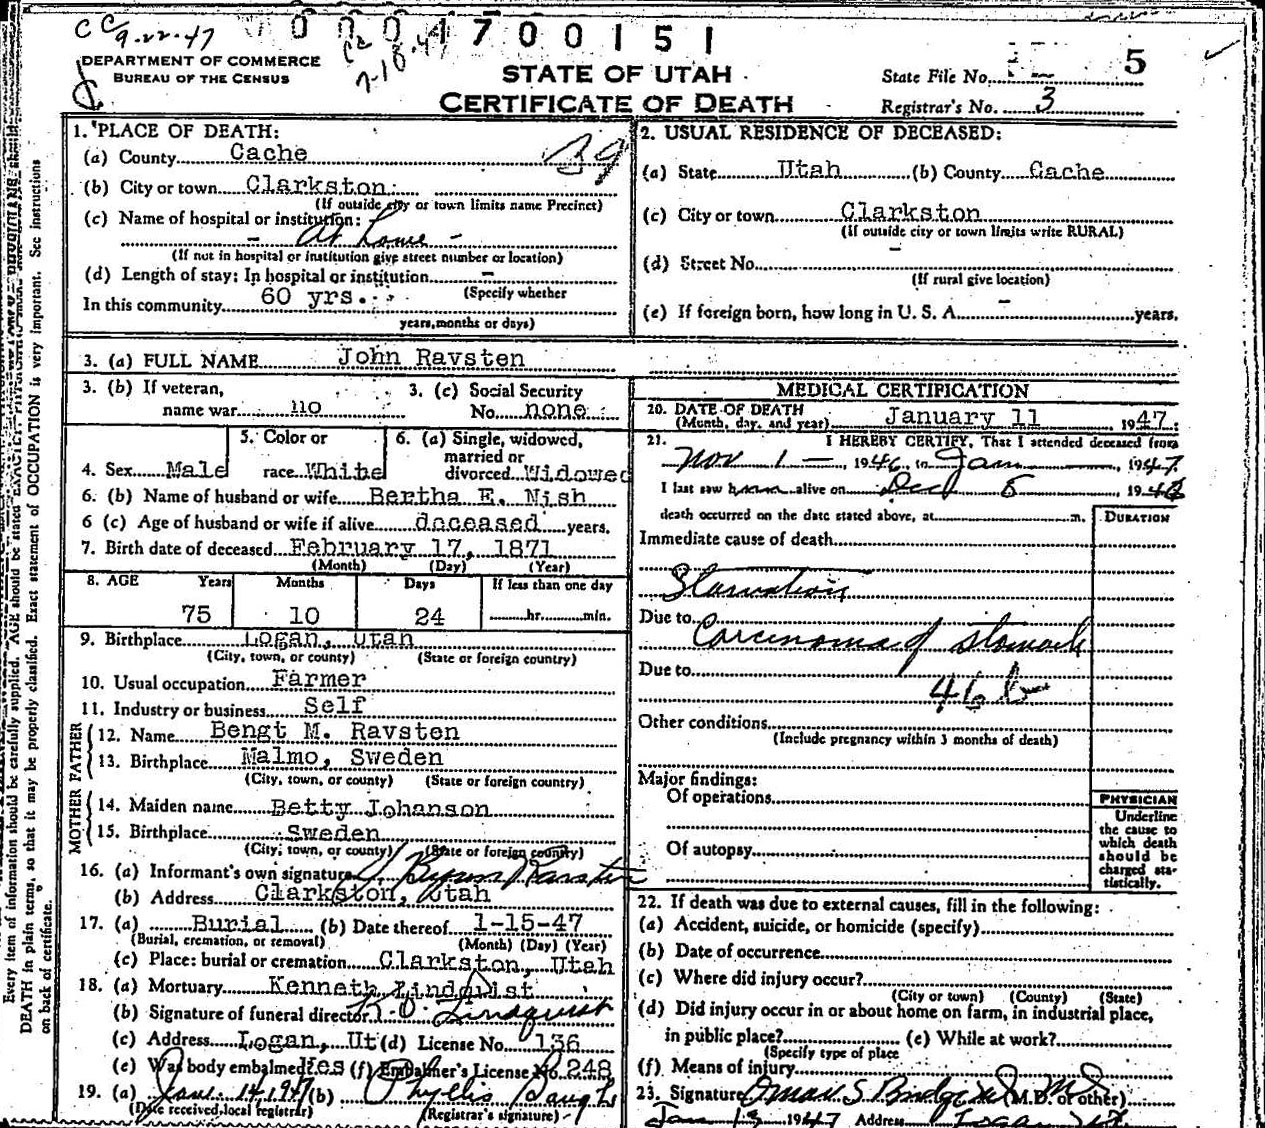 CC 9-22-47
0001700151
CC 7-18-47
DEPARTMENT OF COMMERCE
BUREAU OF THE CENSUS
STATE OF UTAH
CERTIFICATE OF DEATH
State File No. 5
Registrar's No. 3
1. PLACE OF DEATH:
(a) County Cache 39
(b) City or town Clarkston
(If outside city or town limits name Precinct)
(c) Name of hospital or institution:
- At home -
(If not in hospital or institution give street number or location)
(d) Length of stay: In hospital or institution -
(Specify whether
In this community 60 yrs.
years, months or days)
2. USUAL RESIDENCE OF DECEASED:
(a) State Utah (b) County Cache
(c) City or town Clarkston
(If outside city or town limits write RURAL)
(d) Street No. -
(If rural give location)
(e) If foreign born, how long in U. S. A. - years.
3. (a) FULL NAME John Ravsten
3. (b) If veteran,
name war no
3. (c) Social Security
No. none
4. Sex Male
5. Color or
race White
6. (a) Single, widowed,
married or
divorced Widowed
6. (b) Name of husband or wife Bertha E. Nish
6 (c) Age of husband or wife if alive deceased years.
7. Birth date of deceased February 17, 1871
(Month) (Day) (Year)
8. AGE Years Months Days If less than one day
75 10 24 hr. min.
9. Birthplace Logan, Utah
(City, town, or county) (State or foreign country)
10. Usual occupation Farmer
11. Industry or business Self
FATHER
12. Name Bengt M. Ravsten
13. Birthplace Malmo, Sweden
(City, town, or county) (State or foreign country)
MOTHER
14. Maiden name Betty Johanson
15. Birthplace Sweden
(City, town, or county) (State or foreign country)
16. (a) Informant's own signature Byron Ravsten
(b) Address Clarkston, Utah
17. (a) Burial (b) Date thereof 1-15-47
(Burial, cremation, or removal) (Month) (Day) (Year)
(c) Place: burial or cremation Clarkston, Utah
18. (a) Mortuary Kenneth Lindquist
(b) Signature of funeral director K. O. Lindquist
(c) Address Logan, Ut (d) License No. 136
(e) Was body embalmed Yes (f) Embalmer's License No. 248
19. (a) Jan. 14, 1947 (b) Phyllis Baugh
(Date received, local registrar) (Registrar's signature)
MEDICAL CERTIFICATION
20. DATE OF DEATH
(Month, day, and year) January 11 1947
21. I HEREBY CERTIFY, That I attended deceased from
Nov 1 -, 1946, to Jan, 1947
I last saw him alive on Dec 5, 1946
death occurred on the date stated above, at m.
DURATION
Immediate cause of death
Starvation
Due to
Carcinoma of stomach
Due to
46 b
Other conditions
(Include pregnancy within 3 months of death)
Major findings:
Of operations
Of autopsy
PHYSICIAN
Underline
the cause to
which death
should be
charged sta-
tistically.
22. If death was due to external causes, fill in the following:
(a) Accident, suicide, or homicide (specify)
(b) Date of occurrence
(c) Where did injury occur?
(City or town) (County) (State)
(d) Did injury occur in or about home on farm, in industrial place,
in public place? (e) While at work?
(Specify type of place
(f) Means of injury
23. Signature Omar S. Budge M.D. (M.D. or other)
Jan 13 1947 Address Logan Ut.
Every item of information should be carefully supplied. AGE should be stated EXACTLY.
DEATH in plain terms, so that it may be properly classified. Exact statement of OCCUPATION is very important. See instructions
on back of certificate.